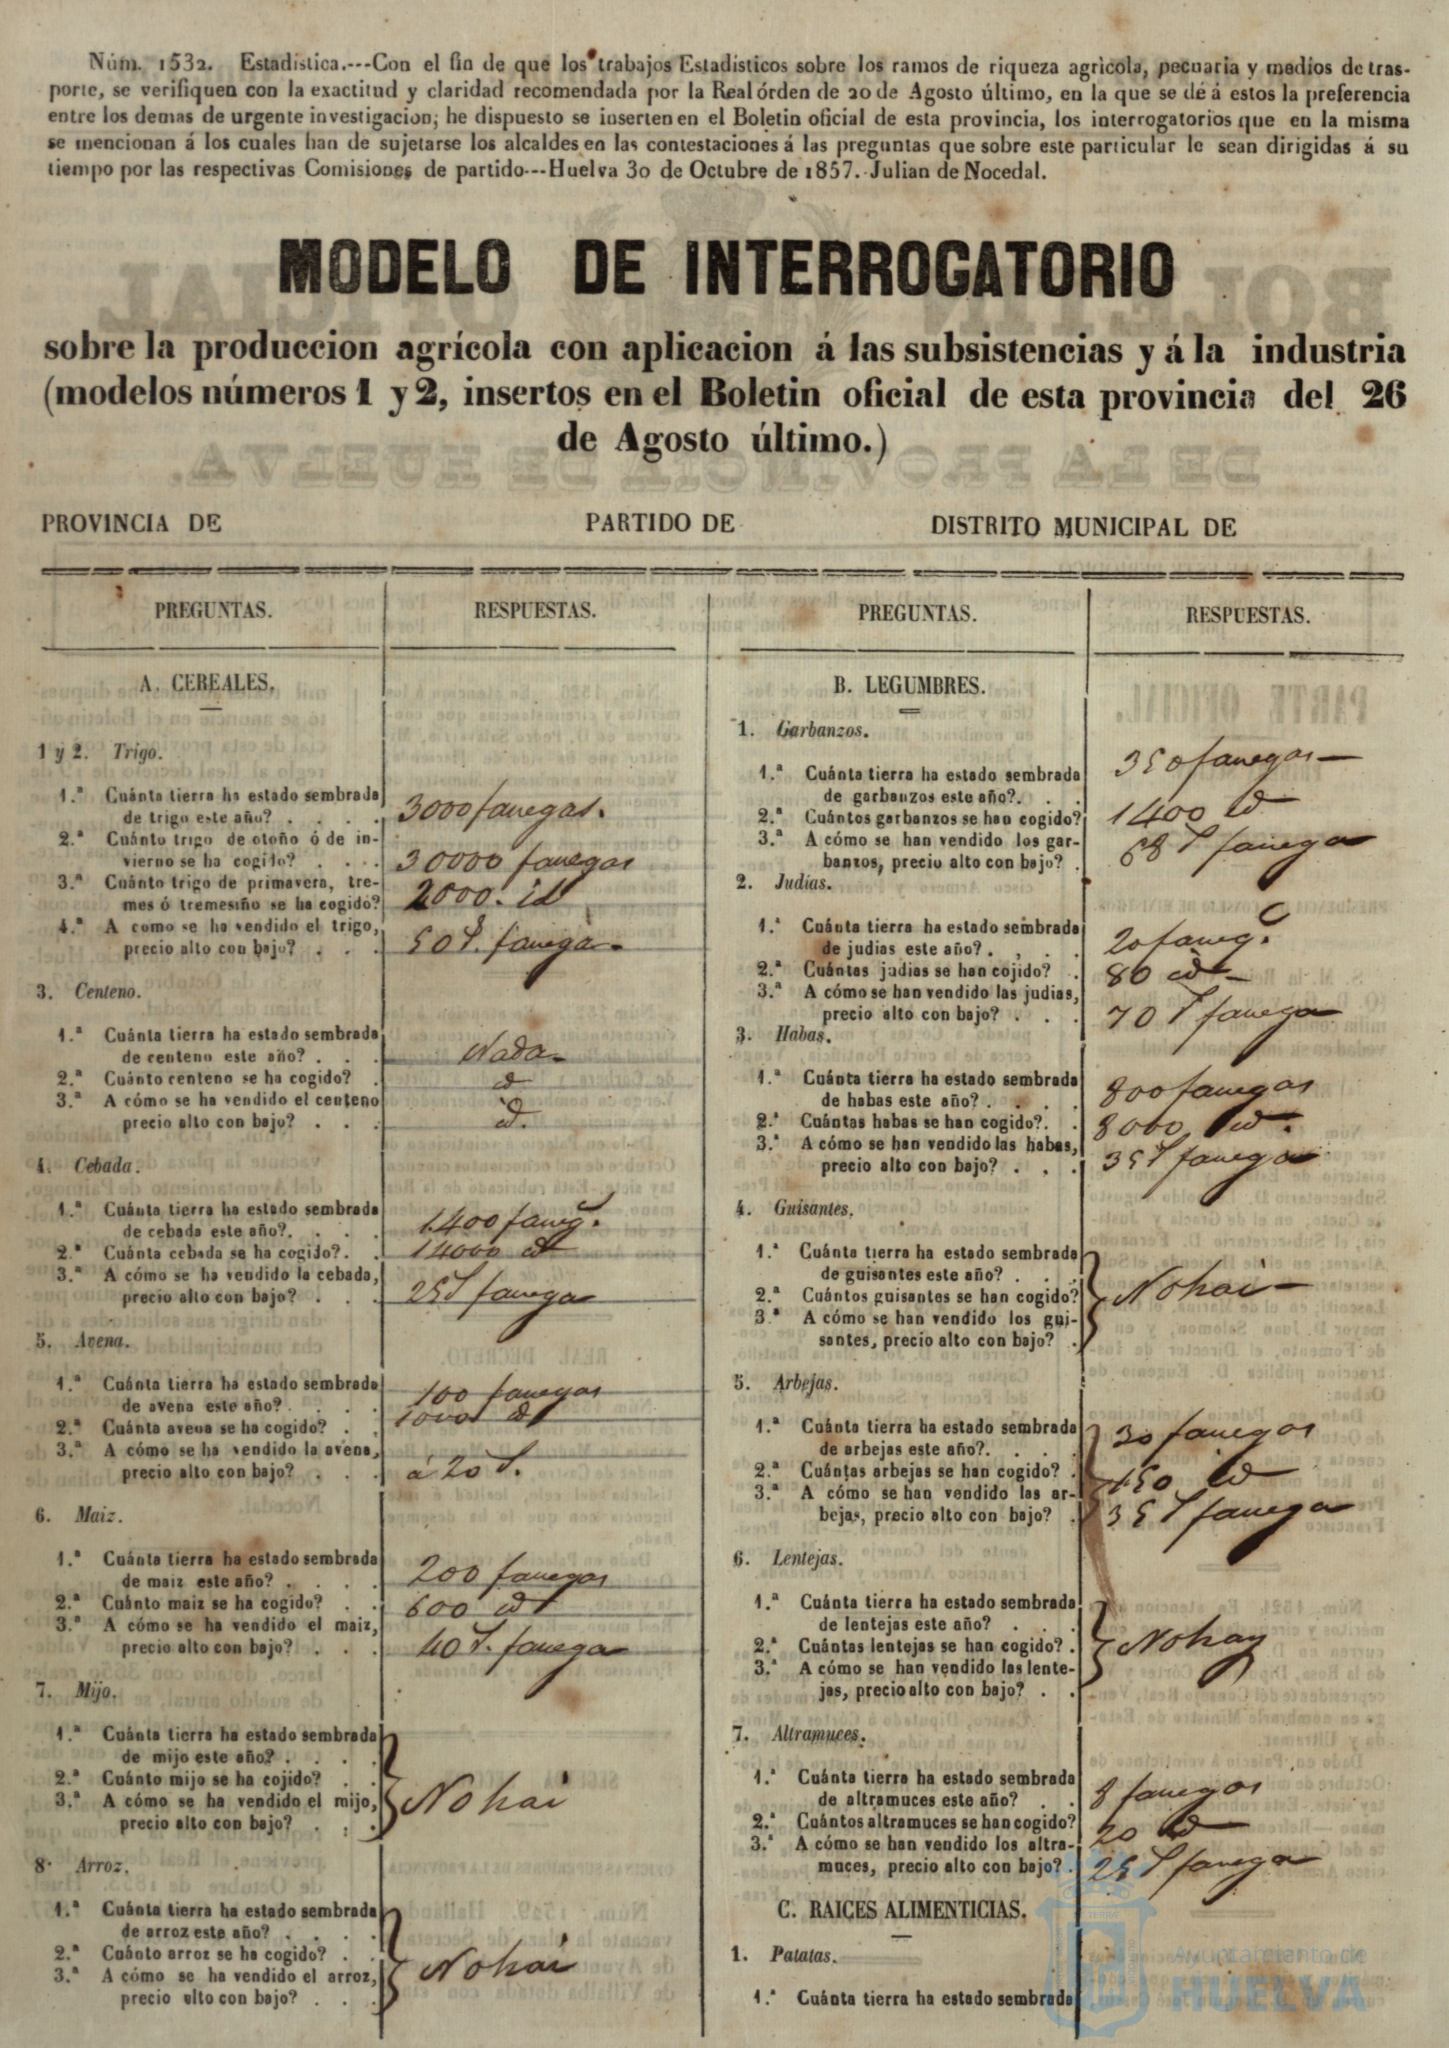 Núm. 1532. Estadística.---Con el fin de que los trabajos Estadisticos sobre los ramos de riqueza agrícola, pecuaria y medios de tras-
porte, se verifiquen con la exactitud y claridad recomendada por la Real órden de 20 de Agosto último, en la que se dé á estos la preferencia
entre los demas de urgente investigacion; he dispuesto se inserten en el Boletin oficial de esta provincia, los interrogatorios que en la misma
se mencionan á los cuales han de sujetarse los alcaldes en las contestaciones á las preguntas que sobre este particular le sean dirigidas á su
tiempo por las respectivas Comisiones de partido---Huelva 30 de Octubre de 1857. Julian de Nocedal.
MODELO DE INTERROGATORIO
sobre la produccion agrícola con aplicacion á las subsistencias y á la industria
(modelos números 1 y 2, insertos en el Boletin oficial de esta provincia del 26
de Agosto último.)
PROVINCIA DE PARTIDO DE DISTRITO MUNICIPAL DE
PREGUNTAS. RESPUESTAS.
A. CEREALES.
1 y 2. Trigo.
1.ª Cuánta tierra ha estado sembrada
de trigo este año? . . . . 3000 fanegas.
2.ª Cuánto trigo de otoño ó de in-
vierno se ha cogido? . . . 30000 fanegas
3.ª Cuánto trigo de primavera, tre-
mes ó tremesiño se ha cogido? 2000. id
4.ª A como se ha vendido el trigo,
precio alto con bajo? . . . 50 r.s fanega.
3. Centeno.
1.ª Cuánta tierra ha estado sembrada
de centeno este año? . . . Nada.
2.ª Cuánto centeno se ha cogido? . id
3.ª A cómo se ha vendido el centeno
precio alto con bajo? . . . id.
4. Cebada.
1.ª Cuánta tierra ha estado sembrada
de cebada este año?. . . . 1400 faneg.s
2.ª Cuánta cebada se ha cogido?. . 14000 id
3.ª A cómo se ha vendido la cebada,
precio alto con bajo? . . . 25 r.s fanega
5. Avena.
1.ª Cuánta tierra ha estado sembrada
de avena este año?. . . . 100 fanegas
2.ª Cuánta avena se ha cogido? . . 1000 id
3.ª A cómo se ha vendido la avena,
precio alto con bajo? . . . á 20 r.s
6. Maiz.
1.ª Cuánta tierra ha estado sembrada
de maiz este año? . . . . 200 fanegas
2.ª Cuánto maiz se ha cogido? . . 600 id
3.ª A cómo se ha vendido el maiz,
precio alto con bajo? . . . 40 r.s fanega
7. Mijo.
1.ª Cuánta tierra ha estado sembrada
de mijo este año? . . . .
2.ª Cuánto mijo se ha cojido? . .
3.ª A cómo se ha vendido el mijo,
precio alto con bajo? . . . No hai
8. Arroz.
1.ª Cuánta tierra ha estado sembrada
de arroz este año? . . . .
2.ª Cuánto arroz se ha cogido? . .
3.ª A cómo se ha vendido el arroz,
precio alto con bajo? . . . No hai
PREGUNTAS. RESPUESTAS.
B. LEGUMBRES.
1. Garbanzos.
1.ª Cuánta tierra ha estado sembrada
de garbanzos este año?. . . 350 fanegas
2.ª Cuántos garbanzos se han cogido? 1400 id
3.ª A cómo se han vendido los gar-
banzos, precio alto con bajo? . 68 r.s fanega
2. Judías.
1.ª Cuánta tierra ha estado sembrada
de judias este año? . . . . 20 faneg.s
2.ª Cuántas judias se han cojido? . 80 id
3.ª A cómo se han vendido las judias,
precio alto con bajo? . . . 70 r.s fanega
3. Habas.
1.ª Cuánta tierra ha estado sembrada
de habas este año? . . . . 800 fanegas
2.ª Cuántas habas se han cogido?. . 8000 id.
3.ª A cómo se han vendido las habas,
precio alto con bajo? . . . 35 r.s fanega
4. Guisantes.
1.ª Cuánta tierra ha estado sembrada
de guisantes este año? . . .
2.ª Cuántos guisantes se han cogido? No hai
3.ª A cómo se han vendido los gui-
santes, precio alto con bajo? .
5. Arbejas.
1.ª Cuánta tierra ha estado sembrada
de arbejas este año?. . . . 30 fanegas
2.ª Cuántas arbejas se han cogido? . 150 id
3.ª A cómo se han vendido las ar-
bejas, precio alto con bajo? . 35 r.s fanega
6. Lentejas.
1.ª Cuánta tierra ha estado sembrada
de lentejas este año? . . .
2.ª Cuántas lentejas se han cogido? . No hay
3.ª A cómo se han vendido las lente-
jas, precio alto con bajo? . .
7. Altramuces.
1.ª Cuánta tierra ha estado sembrada
de altramuces este año? . . 8 fanegas
2.ª Cuántos altramuces se han cogido? 20 id
3.ª A cómo se han vendido los altra-
muces, precio alto con bajo? . 25 r.s fanega
C. RAICES ALIMENTICIAS.
1. Patatas.
1.ª Cuánta tierra ha estado sembrada
Ayuntamiento de
HUELVA